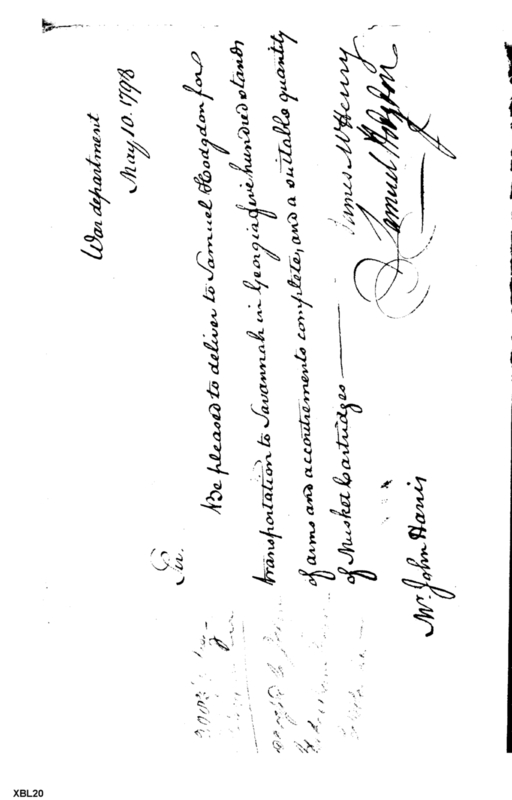 War department
May 10. 1798
Sir.
Be pleased to deliver to Samuel Hodgdon for
transportation to Savannah in Georgia five hundred stands
of arms and accoutrements complete, and a suitable quantity
of Musket Cartridges
James McHenry
Samuel Hodgdon
Mr. John Harris
XBL20